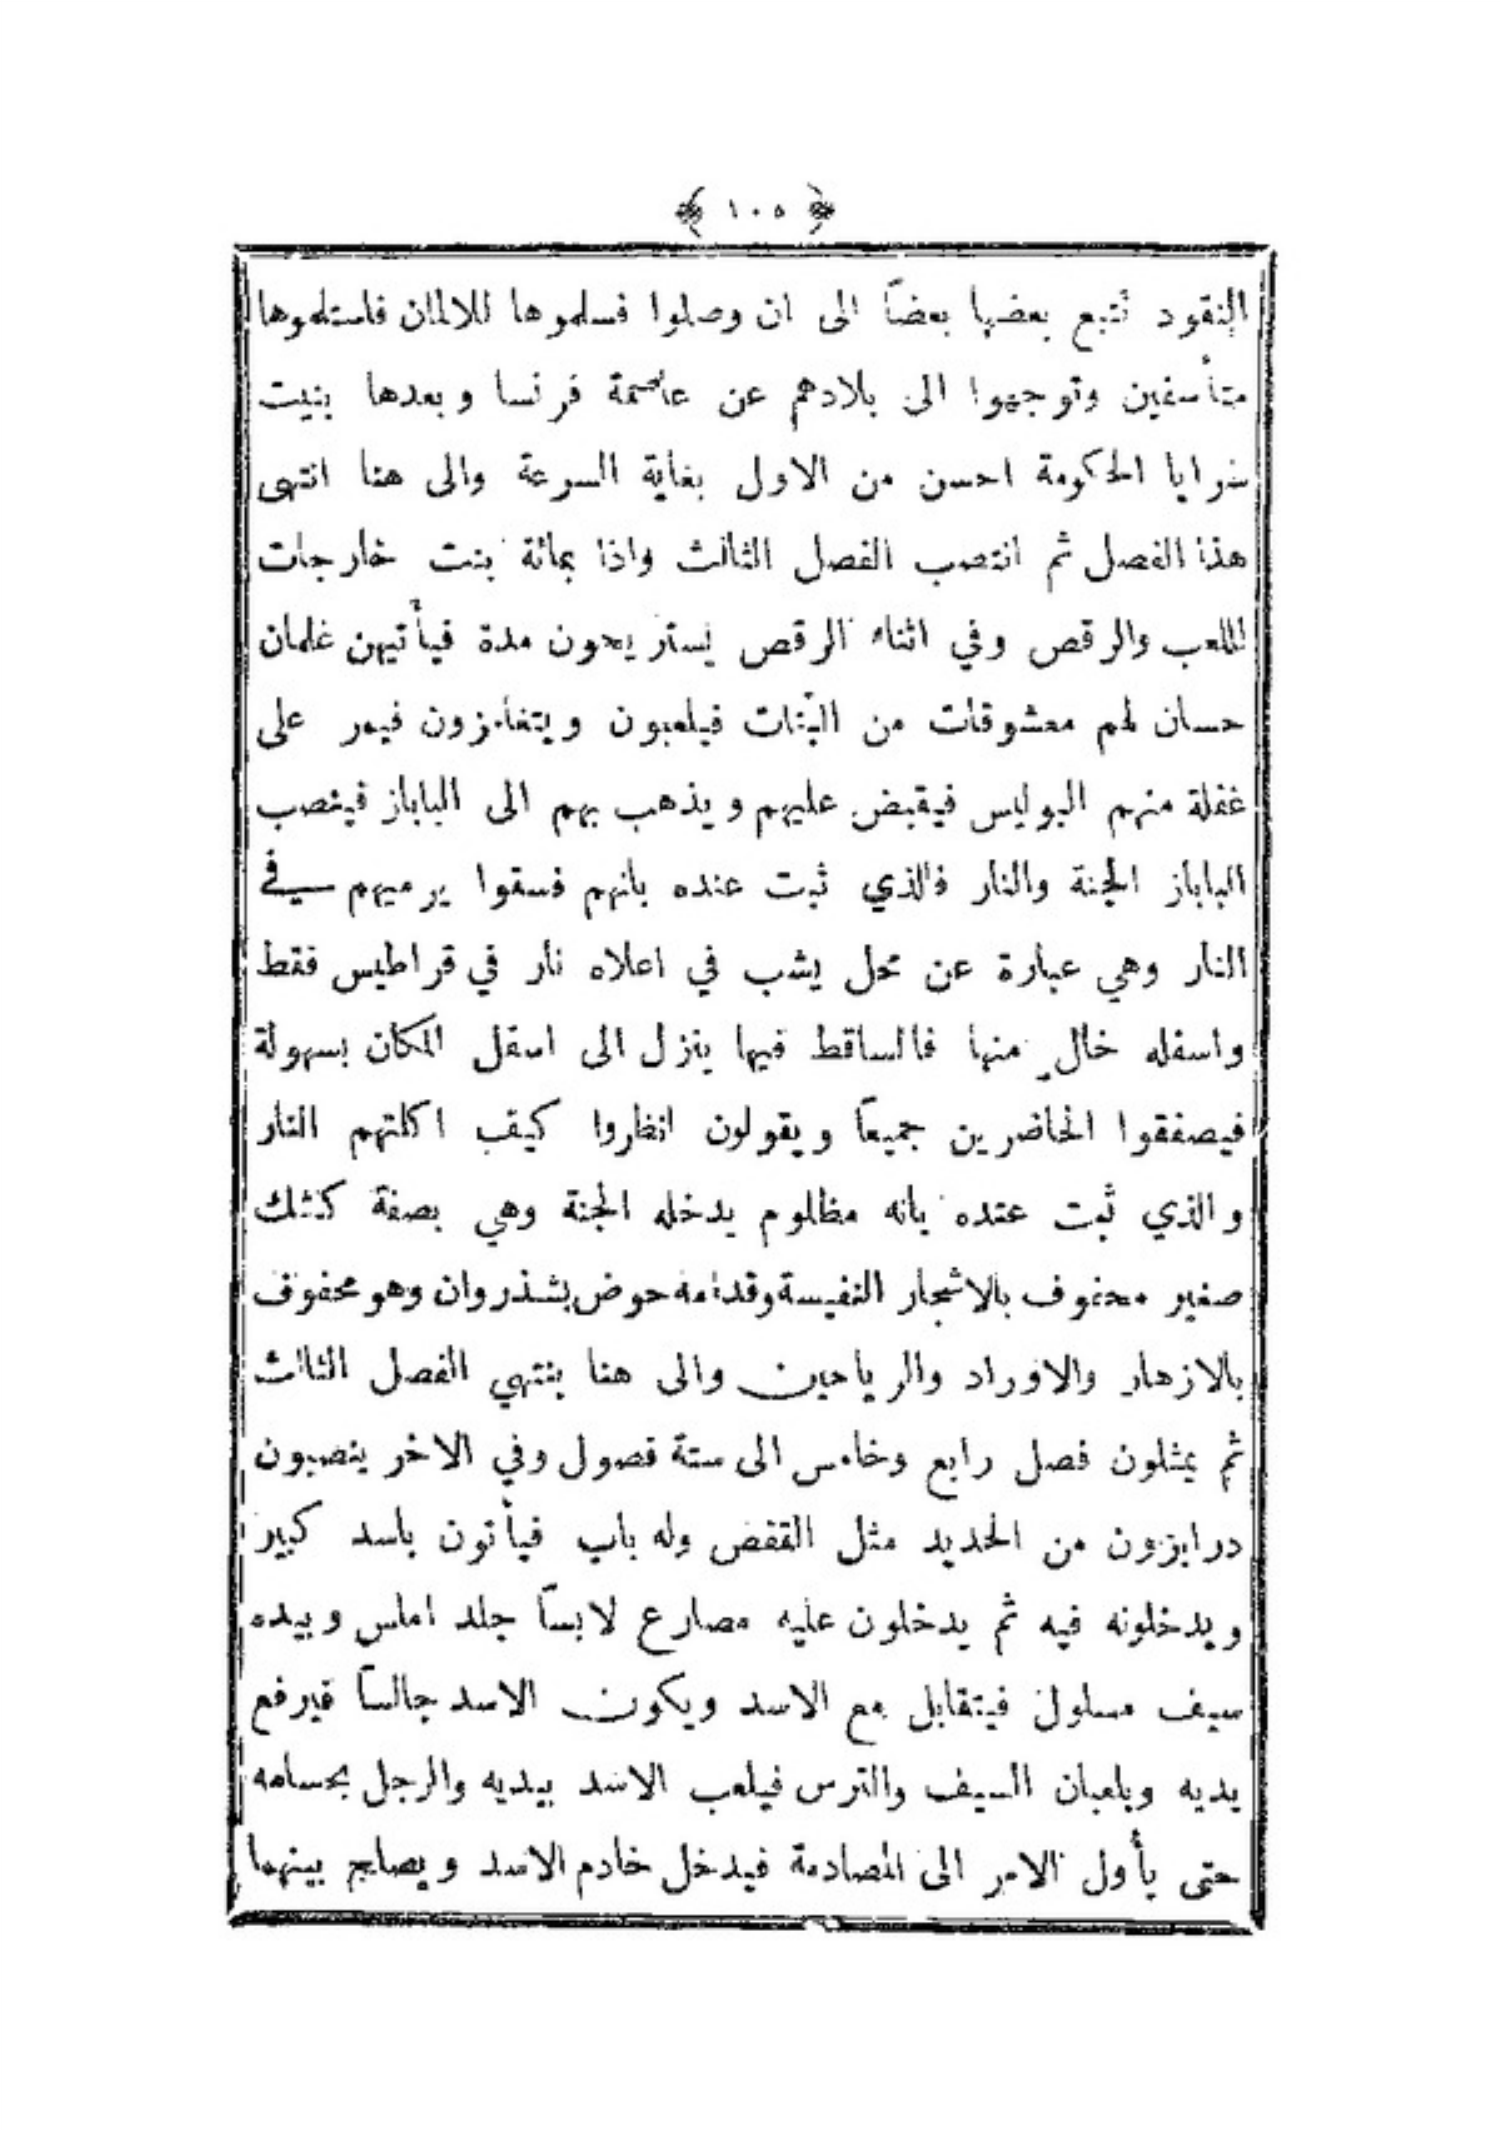 ﴿ ١٠٥ ﴾
النقود تتبع بعضها بعضاً الى ان وصلوا فسلموها للالمان فاستلموها
متأسفين وتوجهوا الى بلادهم عن عاصمة فرنسا وبعدها بنيت
سرايا الحكومة احسن من الاول بغاية السرعة والى هنا انتهى
هذا الفصل ثم انتصب الفصل الثالث واذا بمائة بنت خارجات
للعب والرقص وفي اثناء الرقص يستريحون مدة فيأتيهن غلمان
حسان لهم معشوقات من البنات فيلعبون ويتغامزون فيمر على
غفلة منهم البوليس فيقبض عليهم ويذهب بهم الى الباباز فينصب
الباباز الجنة والنار فالذي ثبت عنده بانهم فسقوا يرميهم في
النار وهي عبارة عن محل يشب في اعلاه نار في قراطيس فقط
واسفله خالٍ منها فالساقط فيها ينزل الى اسفل المكان بسهولة
فيصفقوا الحاضرين جميعاً ويقولون انظروا كيف اكلتهم النار
والذي ثبت عنده بانه مظلوم يدخله الجنة وهي بصفة كشك
صغير محفوف بالاشجار النفيسة وقدامه حوض بشذروان وهو محفوف
بالازهار والاوراد والرياحين والى هنا ينتهي الفصل الثالث
ثم يمثلون فصل رابع وخامس الى ستة فصول وفي الاخر ينصبون
درابزون من الحديد مثل القفص وله باب فيأتون باسد كبير
ويدخلونه فيه ثم يدخلون عليه مصارع لابساً جلد املس وبيده
سيف مسلول فيتقابل مع الاسد ويكون الاسد جالساً فيرفع
يديه ويلعبان السيف والترس فيلعب الاسد بيديه والرجل بحسامه
حتى يأول الامر الى المصادمة فيدخل خادم الاسد ويصالح بينهما